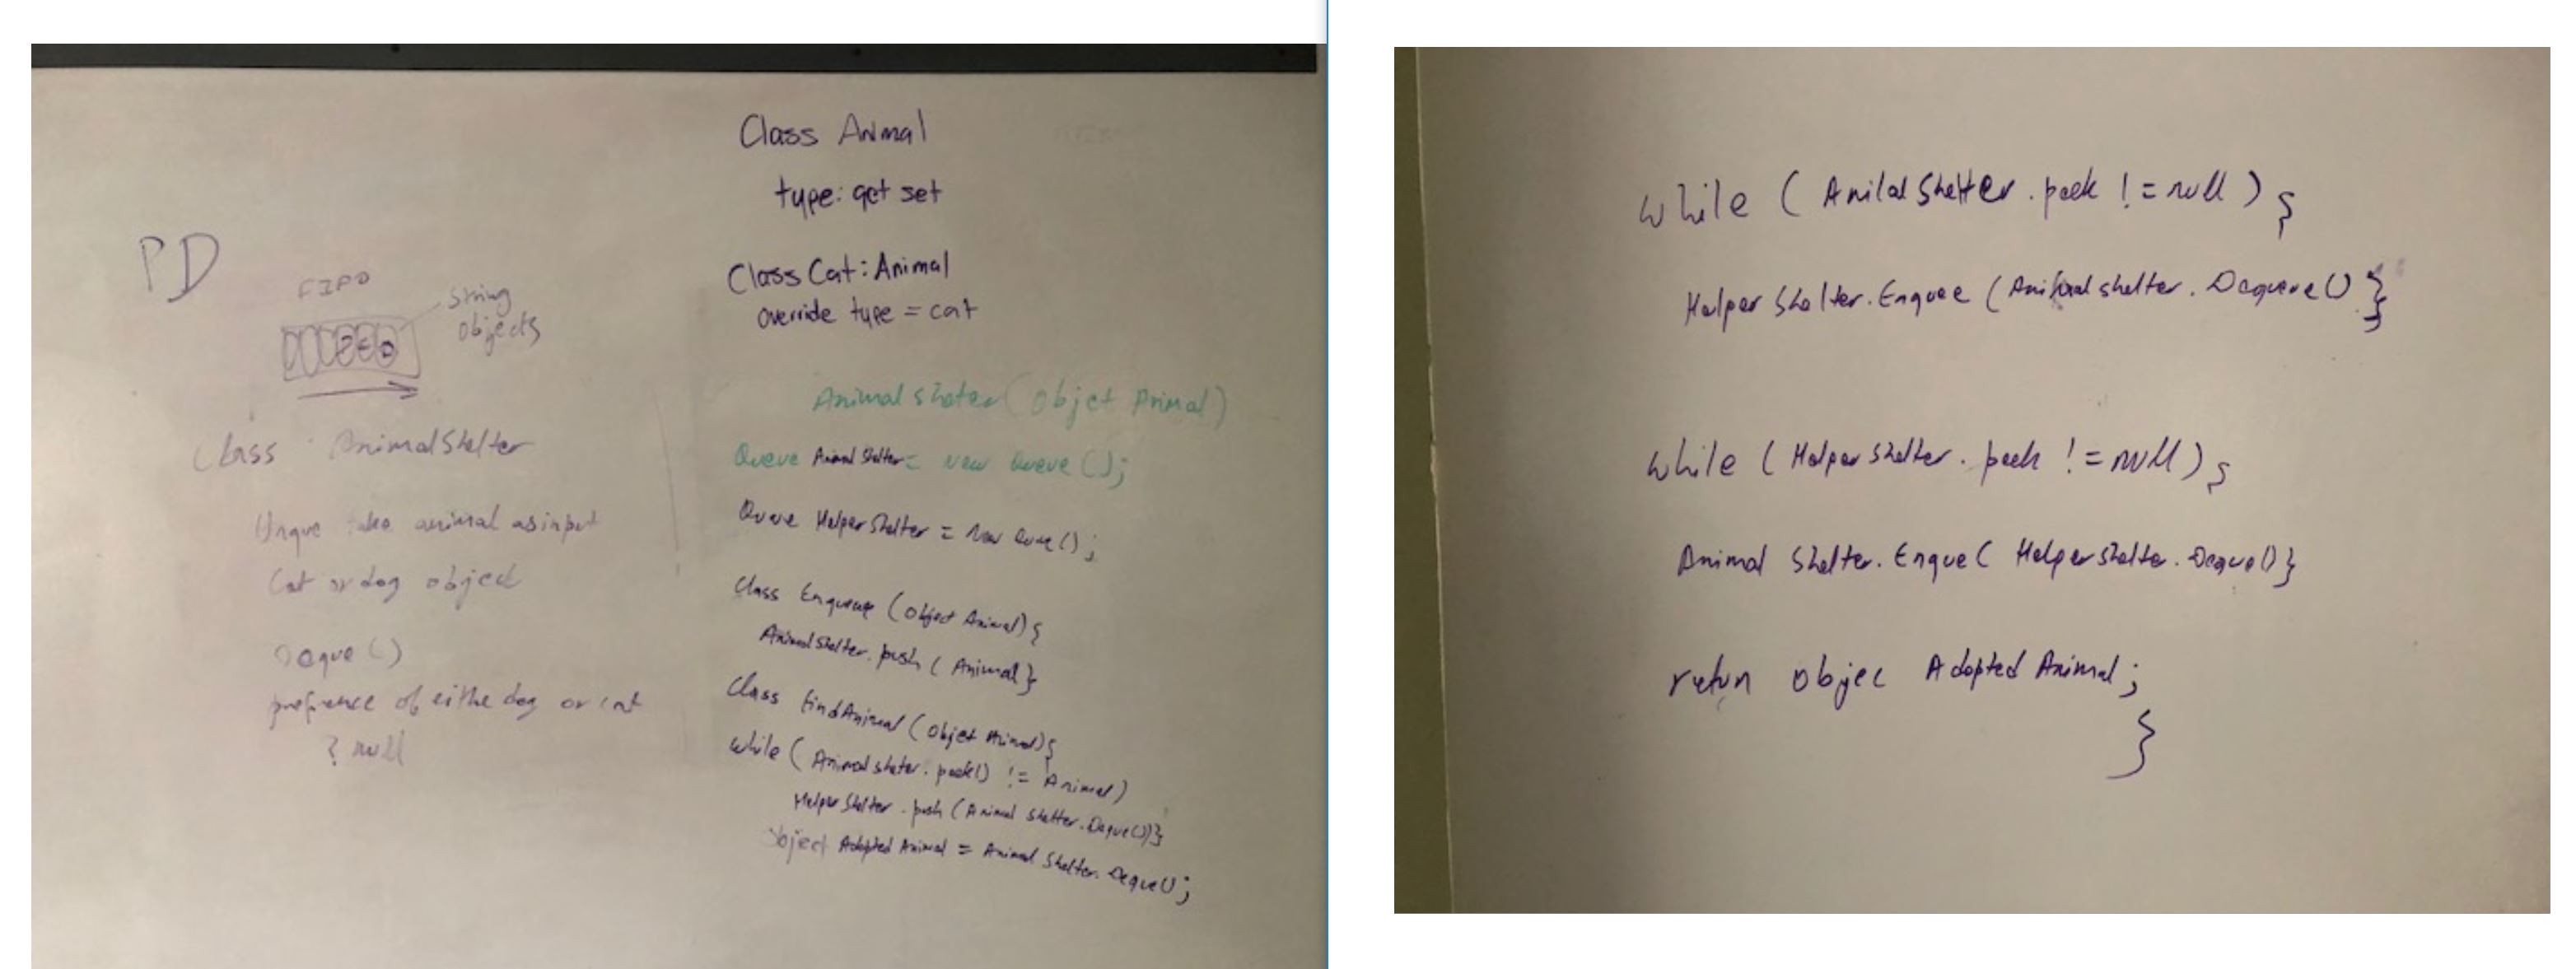 PD
FIFO
string
objects
Class AnimalShelter
take animal as input
Cat or dog object
Deque()
prefrence of eithe dog or cat
? null
Class Animal
type: get set
Class Cat: Animal
override type = cat
Animal Shater (Objet Animal)
Queue Animal Shelter = new Queue();
Queue HelperShelter = new Queue();
Class Enqueue (object Animal){
AnimalShelter.push (Animal}
Class findAnimal (objet Animal){
while (Animalshater.peek() != Animal)
HelperShelter.push (Animal Shelter.Deque())}
object Adopted Animal = Animal Shelter.Deque();
while (AnilalShelter.peek != null) {
Helper Shelter.Enquee (Animalshelter.Dequeue()}
while (HelperShelter.peek != null) {
Animal Shelter.Enque( Helpershelter.Deque()}
retun objec Adopted Animal;
}